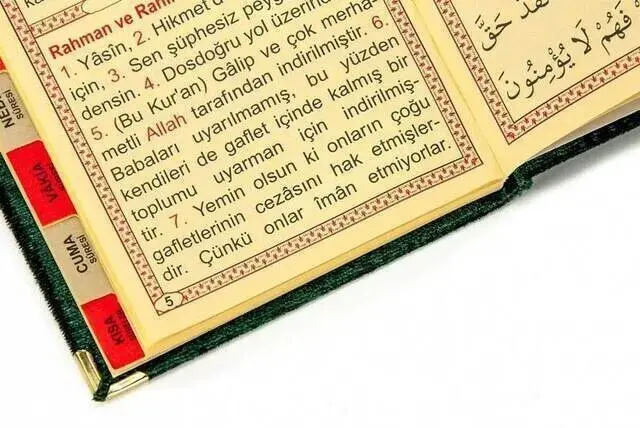 Rahman ve Rahi
1. Yâsîn, 2. Hikmet d
için, 3. Sen şüphesiz peyg
densin. 4. Dosdoğru yol üzerin
5. (Bu Kur'an) Gâlip ve çok merha-
metli Allah tarafından indirilmiştir. 6.
Babaları uyarılmamış, bu yüzden
kendileri de gaflet içinde kalmış bir
toplumu uyarman için indirilmiş-
tir. 7. Yemin olsun ki onların çoğu
gafletlerinin cezâsını hak etmişler-
dir. Çünkü onlar îmân etmiyorlar.
5
حَقَّ
فَهُمْ لَا يُؤْمِنُونَ
NEB
SURESİ
VAKIA
CUMA
SÛRESİ
KISA